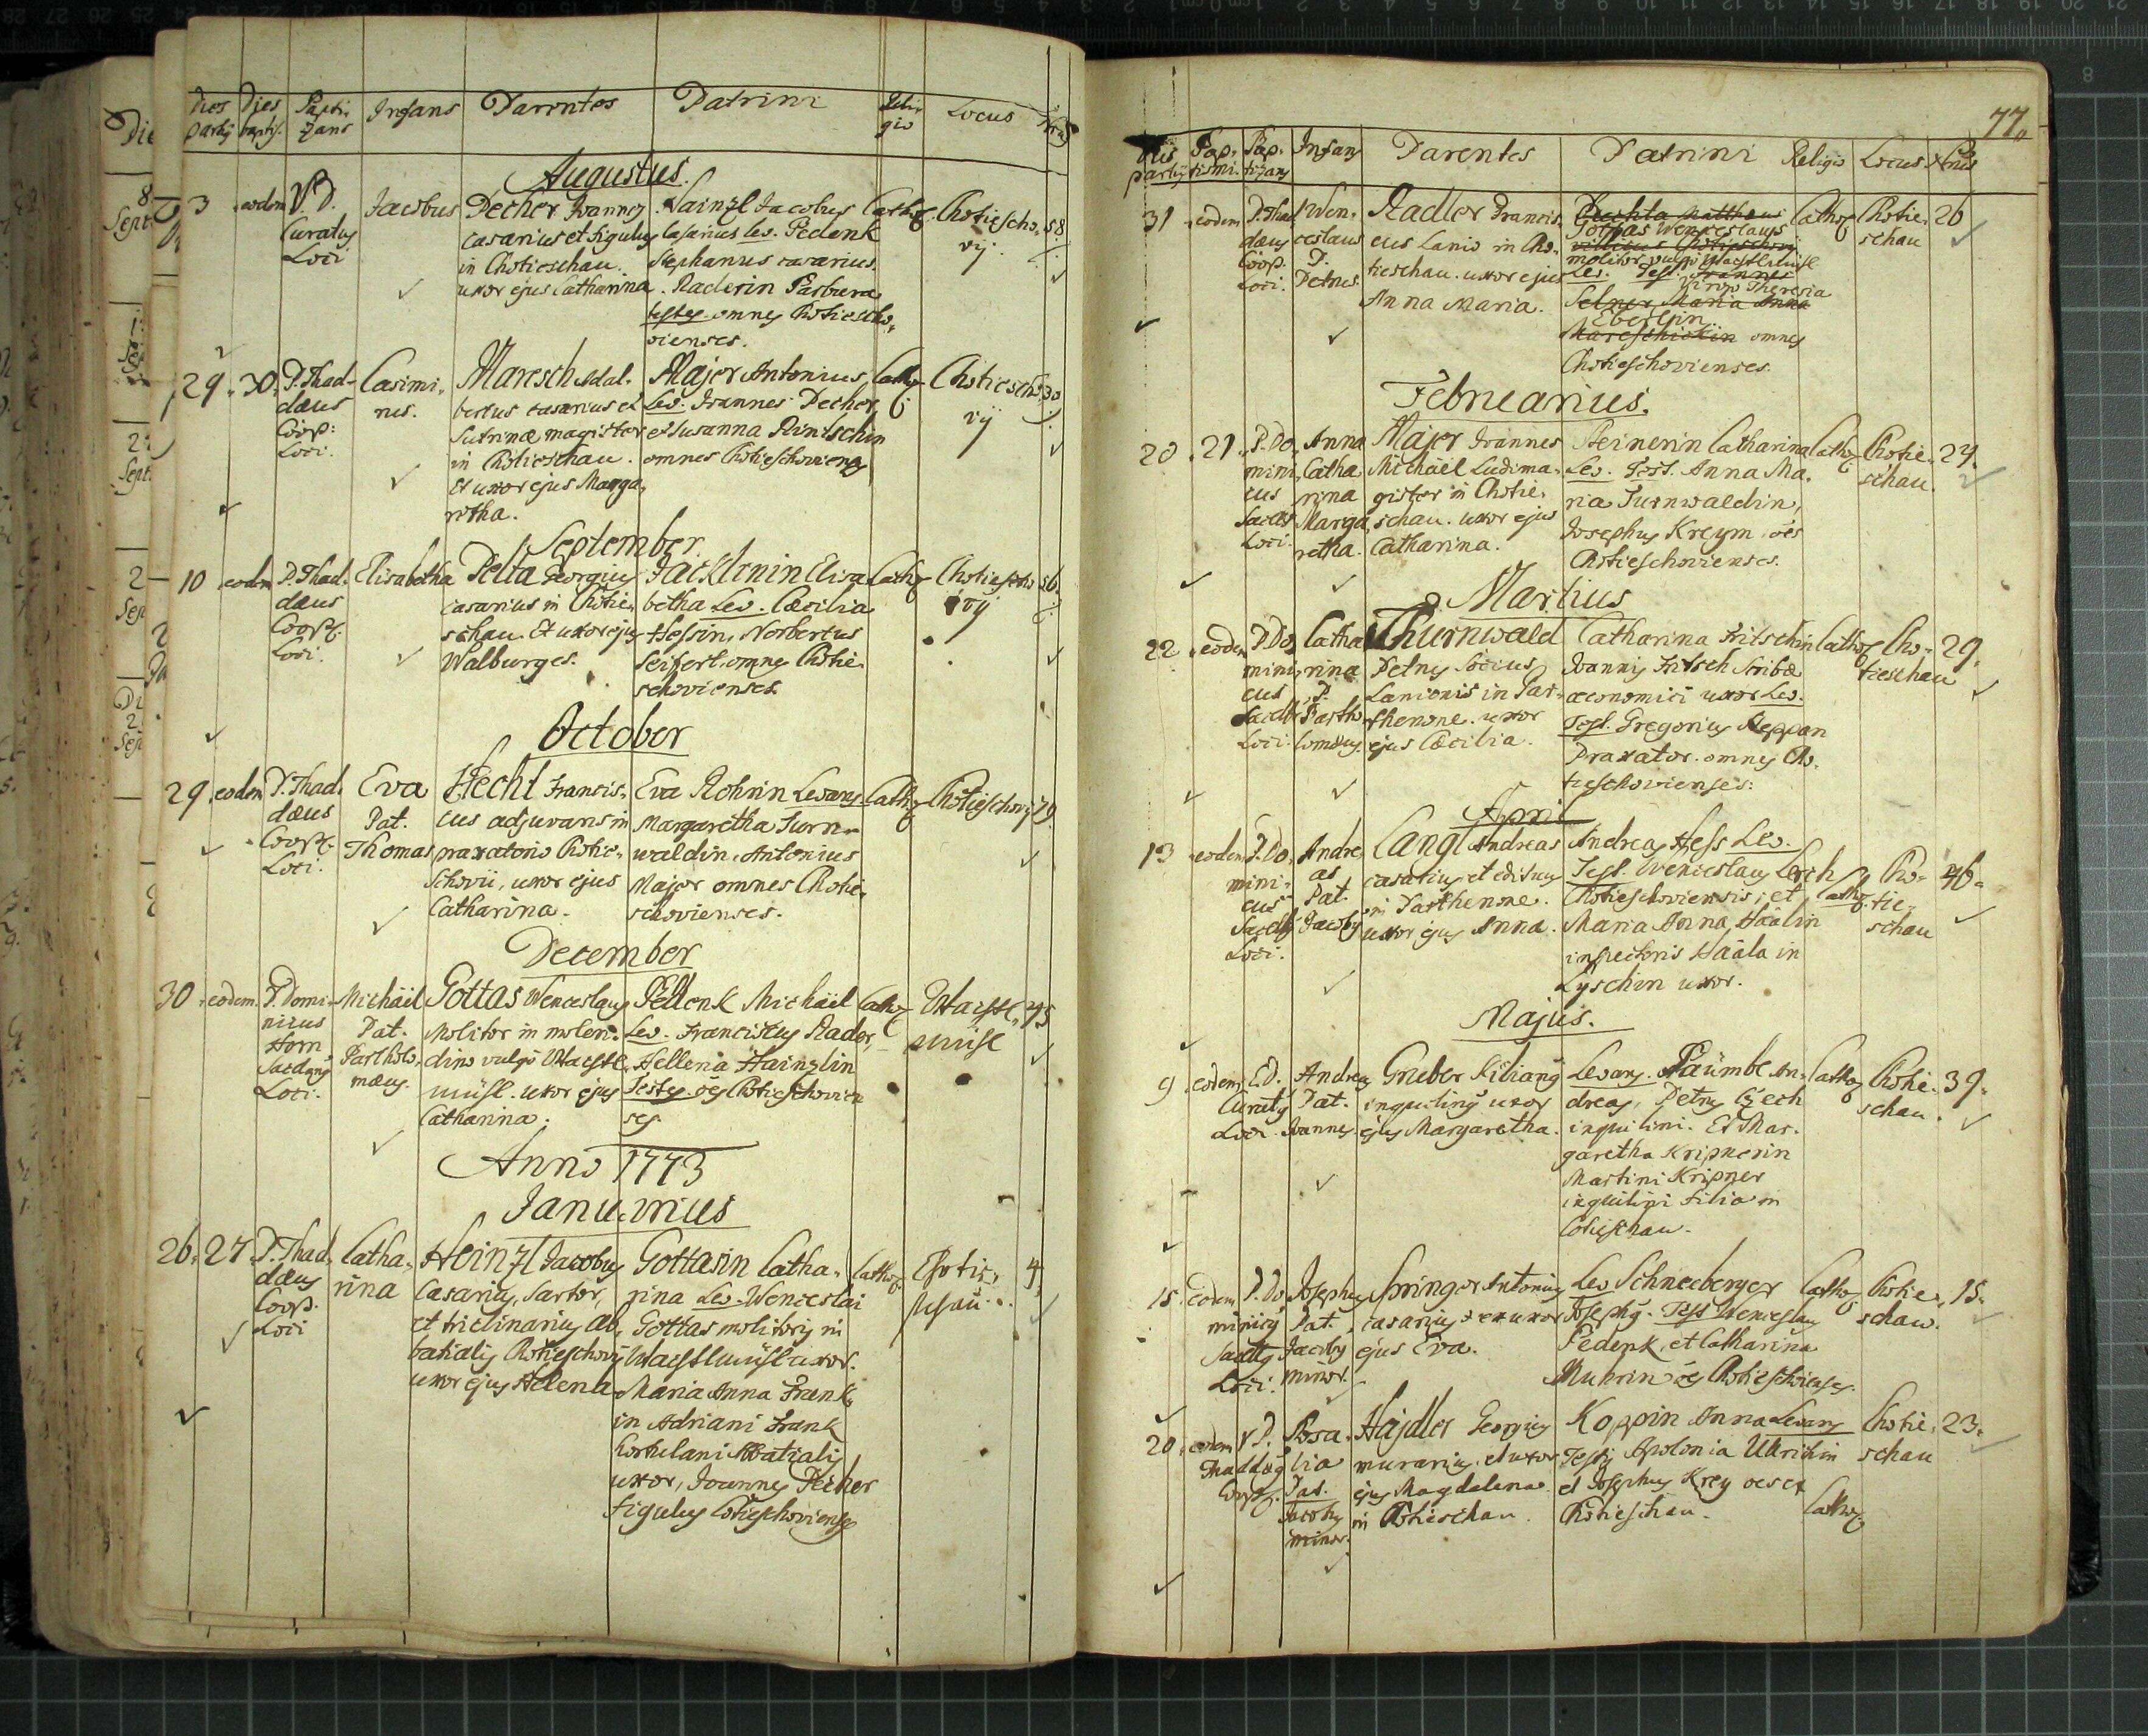 Dies partus Dies baptis. Bapti- zans Infans Parentes Patrini Reli- gio Locus Nrus
Augustus.
3 eodem V.D. Curatus Loci
Jacobus
Pecher Joannes
casarius et figulus
in Chotieschau.
uxor ejus Catharina
Hainzl Jacobus
Casarius Lev. Pedenk
Stephanus casarius.
Raderin Barbara
testes omnes Chotiescho-
vienses.
Cathol. Chotiescho- vij. 58
29. 30. P. Thad-
dæus
Coop:
Loci.
Casimi-
rus.
Maresch Adal-
bertus casarius et
Sutrinæ magister
in Chotieschau.
Et uxor ejus Marga-
retha.
Major Antonius
Lev. Joannes Pecher
et Susanna Rintschin
omnes Chotieschoviens
Cathol. Chotiescho vij 30
September
10 eodem P. Thad-
dæus
Coop.
Loci.
Elisabetha
Pelta Georgius
casarius in Chotie-
schau. Et uxor ejus
Walburges.
Jacklinin Elisa
betha Lev. Cæcilia
Hessin, Norbertus
Seifert. omnes Chotie-
schovienses.
Cathol Chotiescho vij 56
October
29 eodem P. Thad-
dæus
Coop.
Loci.
Eva
Pat.
Thomas
Hecht Francis-
cus adjuvans in
praxatorio Chotie-
schovii, uxor ejus
Catharina.
Eva Rohrin Levans
Margaretha Turn-
waldin. Antonius
Major omnes Chotie-
schovienses.
Cathol Chotieschov
December
30. eodem. P. Domi-
nicus
Horn
Sacdans
Loci.
Michäel
Pat.
Bartholo-
mæus.
Gottas Wenceslaus
Molitor in molen-
dino vulgò Wastl-
müsl. uxor ejus
Catharina.
Pellenk Michäel
Lev. Franciscus Rader,
Hellena Hainzlin
Testes. oes Chotieschovien
ses.
Cathol Wastl- müsl 45
Anno 1773
Januarius
26. 27. P. Thad-
dæus
Coop.
Loci
Catha-
rina
Heinzl Jacobus
Casarius, Sartor,
et triclinarius Ab-
batialis Chotieschovij
uxor ejus Helena
Gottasin Catha-
rina Lev. Wenceslai
Gottas molitoris in
Wastlmüsl uxor.
Maria Anna Frank-
in Adriani Frank
Hortulani Abbatialis
uxor, Joannes Pecher
figulus Cotieschovienses
Cathol. Chotie- schau. 4.
77.
Dies partus Bap- tismi. Bap- tizans Infans Parentes Patrini Religio Locus Nrus
31. eodem P. Thad
dæus
Coop.
Loci.
Wen-
ceslaus
P.
Petrus
Radler Francis-
cus Lanio in Cho-
tieschau. uxor ejus
Anna Maria.
Puchta Matthæus
Gottas Wenceslaus
villicus Chotieschov
molitor vulgò Wastlmüsl
Lev. Test. Joannes
Theresia
Selner, Maria Anna
Eberlin
Mareschickin omnes
Chotieschovienses.
Cathol Chotie- schau 26
Februarius.
20. 21. P. Do-
mini-
cus
Sacdls
Loci.
Anna
Catha
rina
Marga
retha.
Majer Joannes
Michäel Ludima-
gister in Chotie-
schau. uxor ejus
Catharina.
Steinerin Catharina
Lev. Test. Anna Ma-
ria Turnwaldin,
Josephus Kreym oes
Chotieschovienses.
Cathol Chotie- schau. 24.
Martius
22. eodem P. Do
mini-
cus
Sacdls
Loci.
Catha
rina
P.
Bartho-
lomæus.
Thurnwald
Petrus Socius
Lanionis in Par-
thenone. uxor
ejus Cæcilia.
Catharina Fritschin
Joannis Fritsch Scribæ
œconomici uxor Lev.
Test. Gregorius Steppan
Praxator. omnes Cho-
tieschovienses.
Cathol Cho- tieschau 29.
April
13. eodem P. Do-
mini-
cus
Sacdls
Loci.
Andre
as
Pat.
Jacobus
Langl Andreas
casarius et edituus
in Parthenone.
uxor ejus Anna.
Andreas Hess Lev.
Test. Wenceslaus Lerch
Chotieschoviensis, et
Maria Anna Häalin
inspectoris Häala in
Lyschin uxor.
Cathol. Cho- tie- schau 46.
Majus.
9. eodem C.D.
Curatus
Loci.
Andreas
Pat.
Joannes.
Grueber Kilianus
inquilinus uxor
ejus Margaretha.
Levans. Päümbl An-
dreas, Petrus Czech
inquilini. Et Mar-
garetha Kripnerin
Martini Kripner
inquilini filia in
Cotieschau.
Cathol Chotie- schau. 39.
15. eodem P. Do
minicus
Sacdls
Loci.
Josephus
Pat.
Jacobus
minor.
Springer Antonius
casarius et uxor
ejus Eva.
Lev Schneeberger
Josephus. Test Wenceslaus
Pedenk, et Catharina
Muhrin oes Chotieschovienses.
Cathol Chotie- schau. 15.
20. eodem V.P.
Thaddæus
Coop.
Rosa-
lia
Pat.
Jacobus
minor.
Hajdler Georgius
murarius. et uxor
ejus Magdalena
in Chotieschau.
Koppin Anna Levans
Testes Apolonia Ulrichin
et Josephus Krey oes ex
Chotieschau.
Cathol Chotie- schau 23.